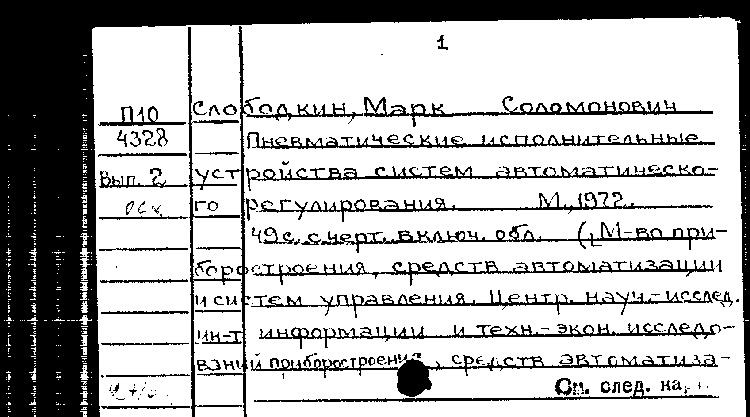 1
П10 Слободкин, Марк Соломонович
4328 Пневматические исполнительные
Вып. 2 устройства систем автоматическо-
го регулирования. М., 1972.
49 с. с черт. включ. обл. (М-во при-
боростроения, средств автоматизации
и систем управления. Центр. науч.-исслед.
ин-т информации и техн.-экон. исследо-
ваний приборостроения, средств автоматиза-
См. след. на